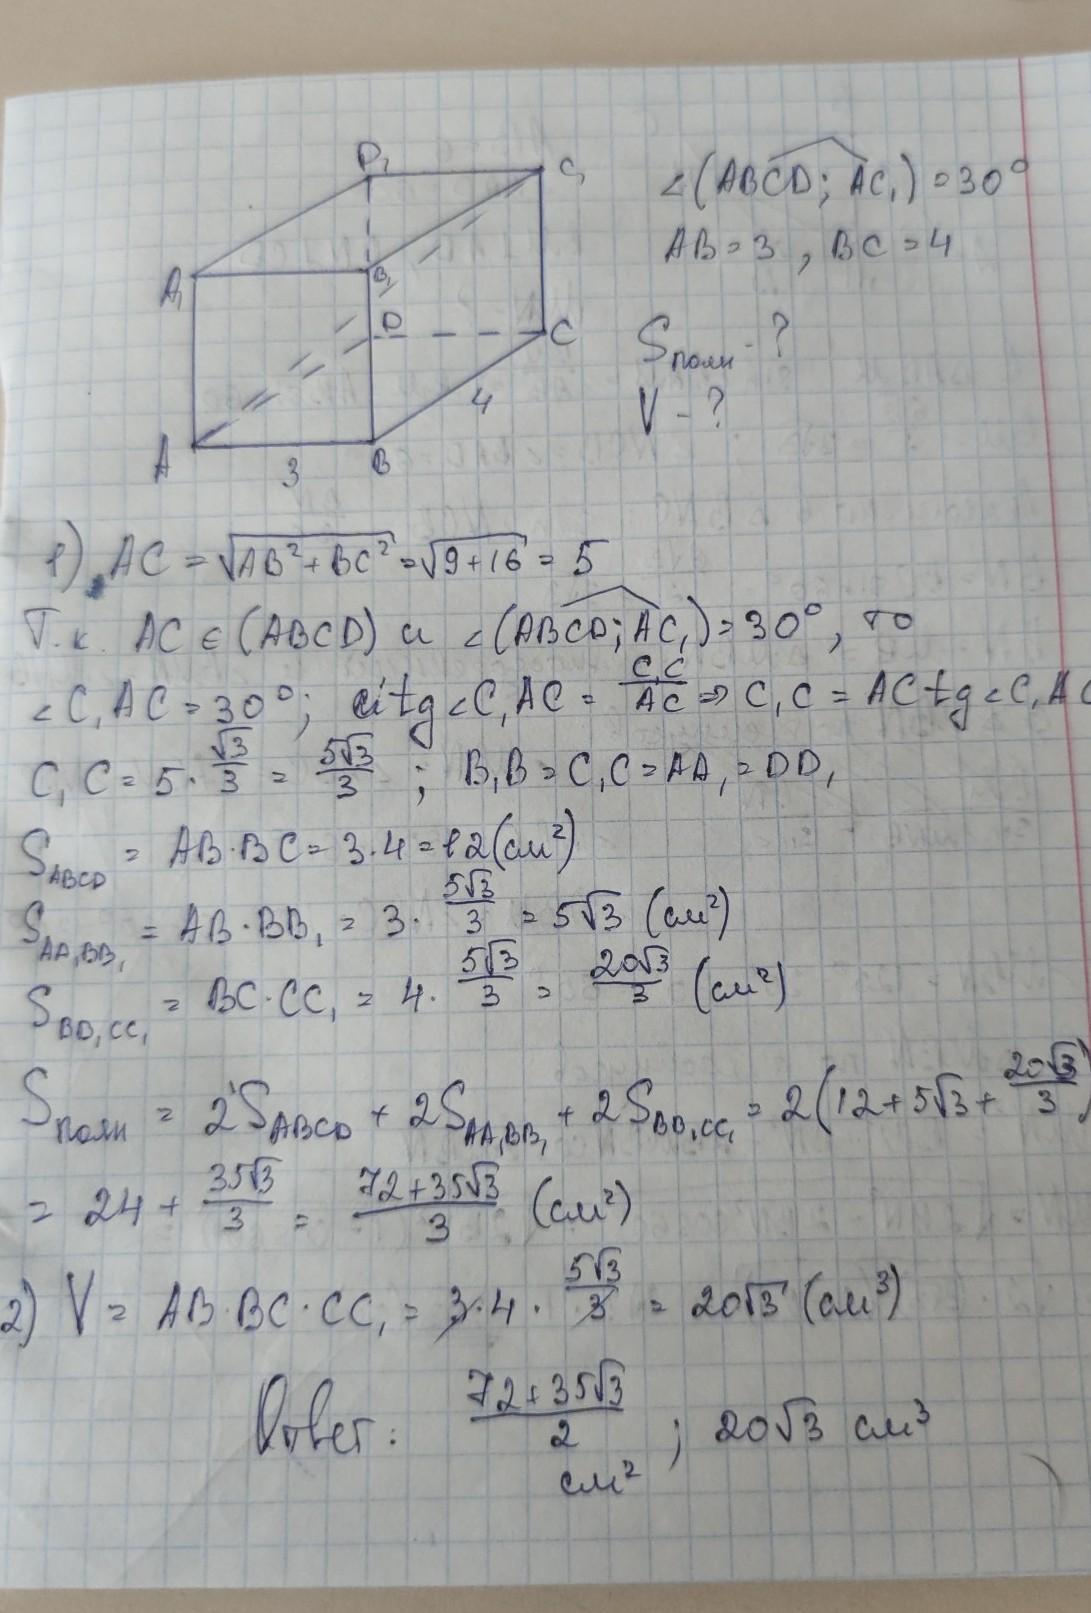 D₁ C₁
A₁ B₁
D C
A B
3 4
∠(ABCD; AC₁) = 30°
AB = 3, BC = 4
Sполн - ?
V - ?
1) AC = √(AB² + BC²) = √(9+16) = 5
Т.к. AC ∈ (ABCD) и ∠(ABCD; AC₁) = 30°, то
∠C₁AC = 30°; tg∠C₁AC = C₁C/AC ⇒ C₁C = AC tg∠C₁AC
C₁C = 5 · √3/3 = 5√3/3 ; B₁B = C₁C = AA₁ = DD₁
S_ABCD = AB·BC = 3·4 = 12 (см²)
S_AA₁BB₁ = AB·BB₁ = 3 · 5√3/3 = 5√3 (см²)
S_BB₁CC₁ = BC·CC₁ = 4 · 5√3/3 = 20√3/3 (см²)
Sполн = 2S_ABCD + 2S_AA₁BB₁ + 2S_BB₁CC₁ = 2(12 + 5√3 + 20√3/3)
= 24 + 35√3/3 = (72+35√3)/3 (см²)
2) V = AB·BC·CC₁ = 3·4 · 5√3/3 = 20√3 (см³)
Ответ: (72+35√3)/2 см² ; 20√3 см³